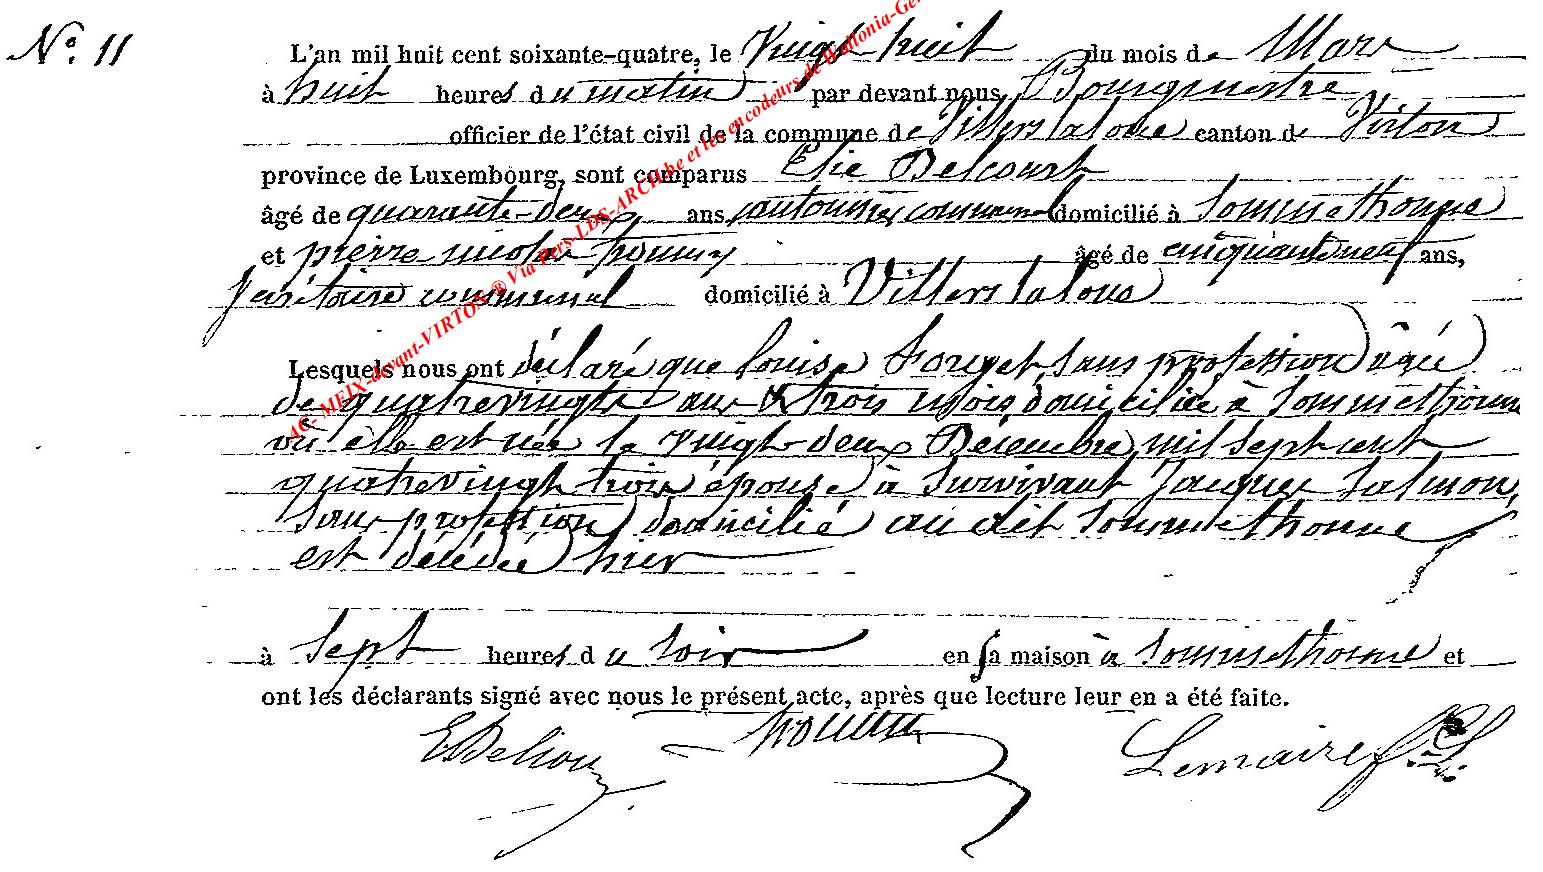 N° 11
L'an mil huit cent soixante-quatre, le Vingt huit du mois de Mars
à huit heures du matin par devant nous Bourgmestre
officier de l'état civil de la commune de Villers la loue canton de Virton
province de Luxembourg, sont comparus Elie Delcourt
âgé de quarante-deux ans, cantonnier communal domicilié à Sommethonne
et pierre nicolas âgé de cinquante neuf ans,
communal domicilié à Villers la loue
Lesquels nous ont déclaré que louise Forget, sans profession, âgée
de quatrevingts ans & trois mois, domiciliée à Sommethonne
où elle est née le vingt deux Décembre mil sept cent
quatrevingt trois, épouse à survivant Jacques Salmon,
sans profession, domicilié au dit Sommethonne
est décédée hier
à Sept heures du soir en sa maison à Sommethonne et
ont les déclarants signé avec nous le présent acte, après que lecture leur en a été faite.
Lemaire
AC- MEIX-devant-VIRTON-® Via Pers-LDS-ARCH.be et les encodeurs de Wallonia-Gen